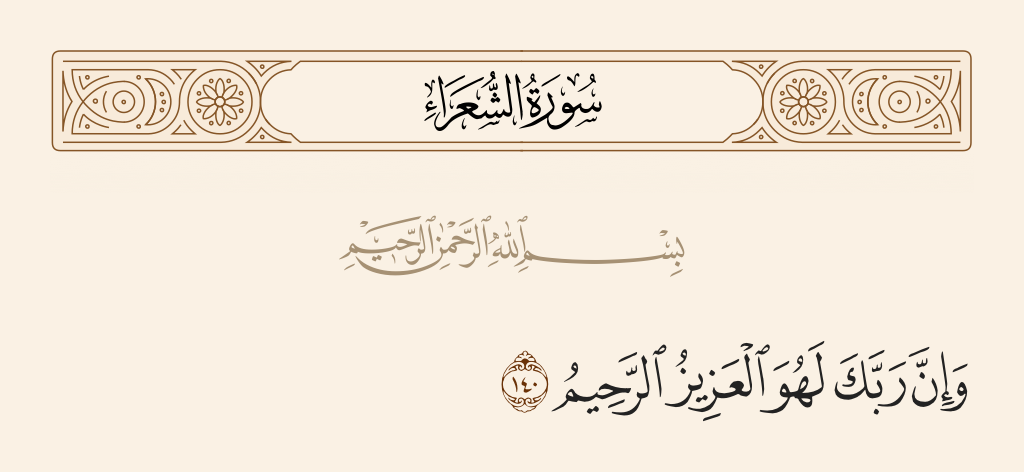 سُورَةُ الشُّعَرَاءِ
بِسْمِ ٱللَّهِ ٱلرَّحْمَٰنِ ٱلرَّحِيمِ
وَإِنَّ رَبَّكَ لَهُوَ ٱلْعَزِيزُ ٱلرَّحِيمُ ١٤٠